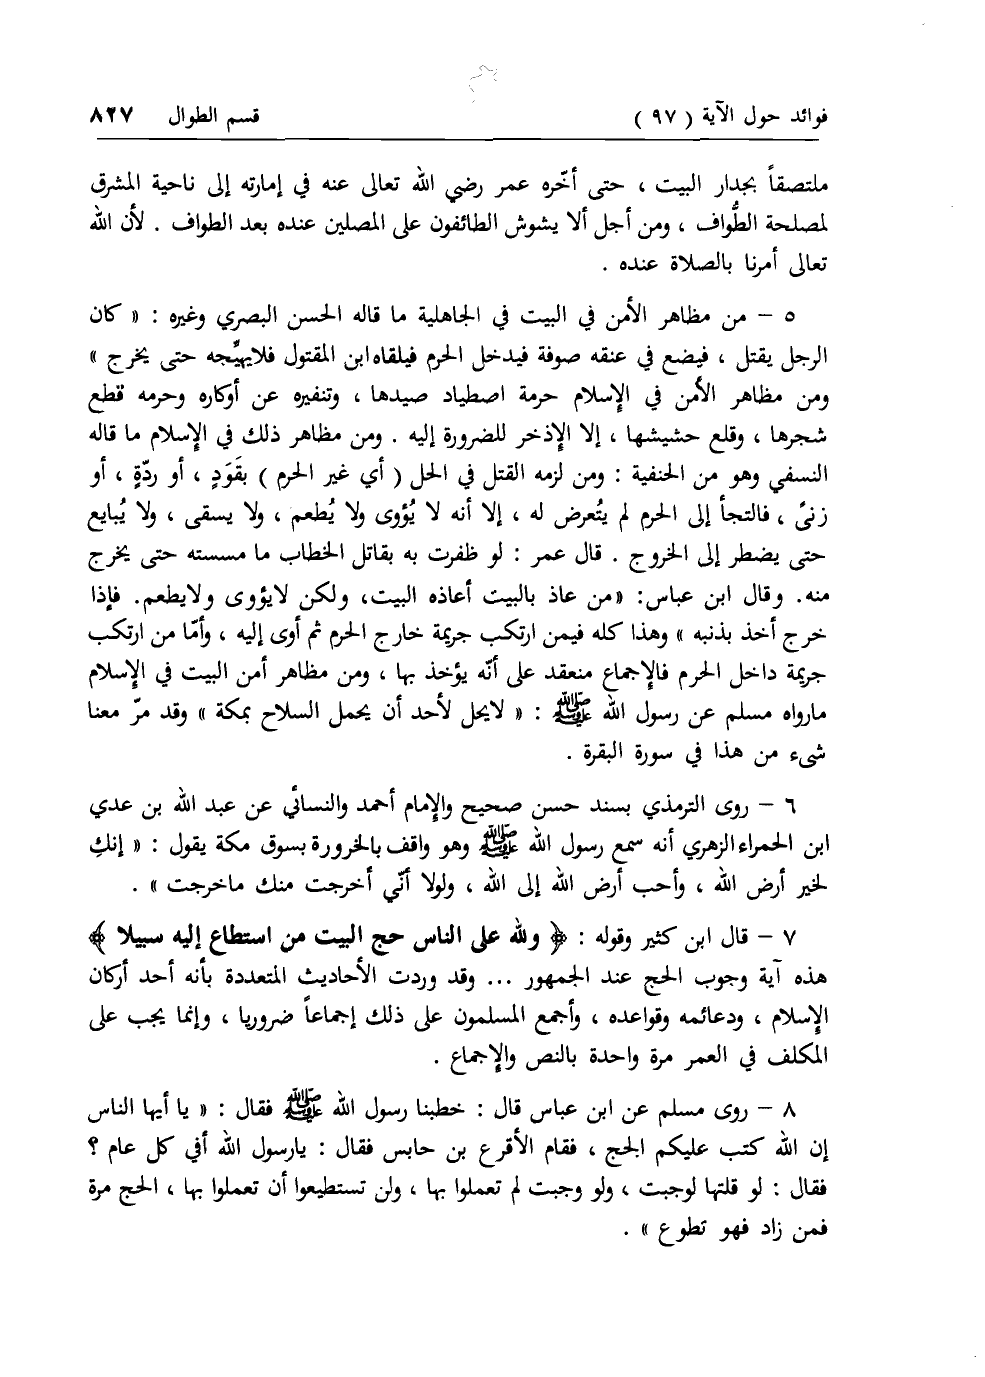 فوائد حول الآية ( ٩٧ ) قسم الطوال ٨٢٧
ملتصقاً بجدار البيت ، حتى أخّره عمر رضي الله تعالى عنه في إمارته إلى ناحية المشرق
لمصلحة الطُّواف ، ومن أجل ألا يشوش الطائفون على المصلين عنده بعد الطواف . لأن الله
تعالى أمرنا بالصلاة عنده .
٥ – من مظاهر الأمن في البيت في الجاهلية ما قاله الحسن البصري وغيره : « كان
الرجل يقتل ، فيضع في عنقه صوفة فيدخل الحرم فيلقاه ابن المقتول فلايهيِّجه حتى يخرج »
ومن مظاهر الأمن في الإسلام حرمة اصطياد صيدها ، وتنفيره عن أوكاره وحرمه قطع
شجرها ، وقلع حشيشها ، إلا الإذخر للضرورة إليه . ومن مظاهر ذلك في الإسلام ما قاله
النسفي وهو من الحنفية : ومن لزمه القتل في الحل ( أي غير الحرم ) بقَوَدٍ ، أو ردّةٍ ، أو
زنىً ، فالتجأ إلى الحرم لم يتُعرض له ، إلا أنه لا يُؤوى ولا يُطعم ، ولا يسقى ، ولا يُبايع
حتى يضطر إلى الخروج . قال عمر : لو ظفرت به بقاتل الخطاب ما مسسته حتى يخرج
منه. وقال ابن عباس: «من عاذ بالبيت أعاذه البيت، ولكن لايؤوى ولايطعم. فإذا
خرج أخذ بذنبه » وهذا كله فيمن ارتكب جريمة خارج الحرم ثم أوى إليه ، وأمّا من ارتكب
جريمة داخل الحرم فالإجماع منعقد على أنّه يؤخذ بها ، ومن مظاهر أمن البيت في الإسلام
مارواه مسلم عن رسول الله ﷺ : « لايحل لأحد أن يحمل السلاح بمكة » وقد مرّ معنا
شيء من هذا في سورة البقرة .
٦ – روى الترمذي بسند حسن صحيح والإمام أحمد والنسائي عن عبد الله بن عدي
ابن الحمراء الزهري أنه سمع رسول الله ﷺ وهو واقف بالخرورة بسوق مكة يقول : « إنكِ
لخير أرض الله ، وأحب أرض الله إلى الله ، ولولا أنّي أخرجت منك ماخرجت » .
٧ – قال ابن كثير وقوله : ﴿ ولله على الناس حج البيت من استطاع إليه سبيلا ﴾
هذه آية وجوب الحج عند الجمهور ... وقد وردت الأحاديث المتعددة بأنه أحد أركان
الإسلام ، ودعائمه وقواعده ، وأجمع المسلمون على ذلك إجماعاً ضروريا ، وإنما يجب على
المكلف في العمر مرة واحدة بالنص والإجماع .
٨ – روى مسلم عن ابن عباس قال : خطبنا رسول الله ﷺ فقال : « يا أيها الناس
إن الله كتب عليكم الحج ، فقام الأقرع بن حابس فقال : يارسول الله أفي كل عام ؟
فقال : لو قلتها لوجبت ، ولو وجبت لم تعملوا بها ، ولن تستطيعوا أن تعملوا بها ، الحج مرة
فمن زاد فهو تطوع » .